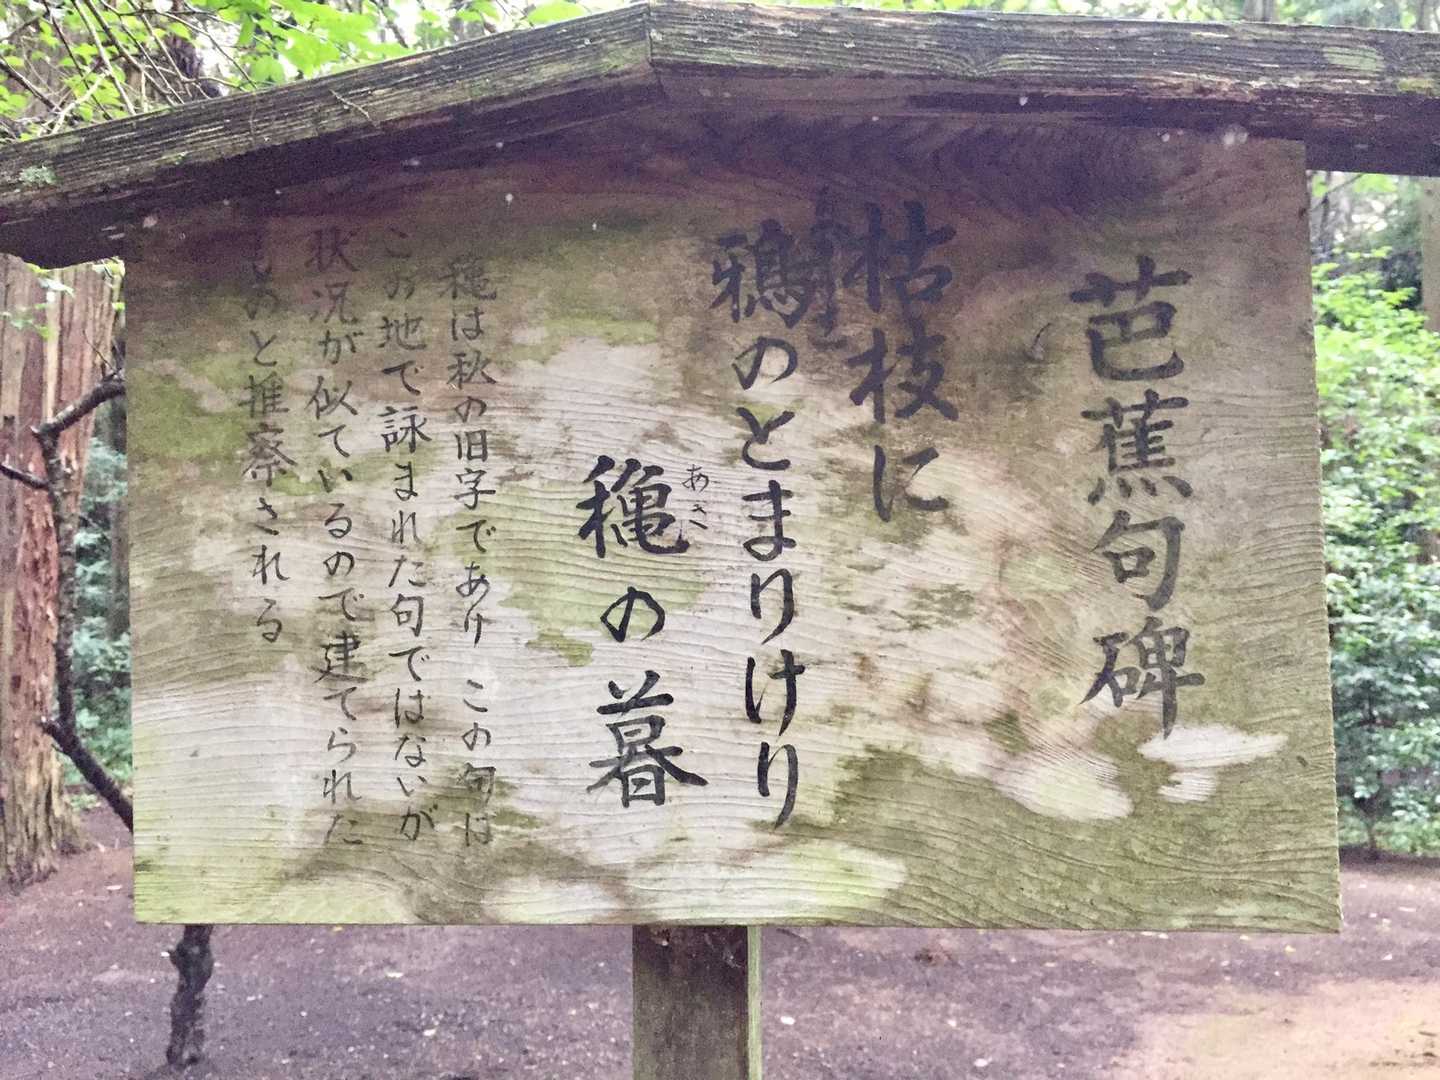 芭蕉句碑
枯枝に
鴉のとまりけり
あき
穐の暮
穐は秋の旧字であり この句は
この地で詠まれた句ではないが
状況が似ているので建てられた
ものと推察される